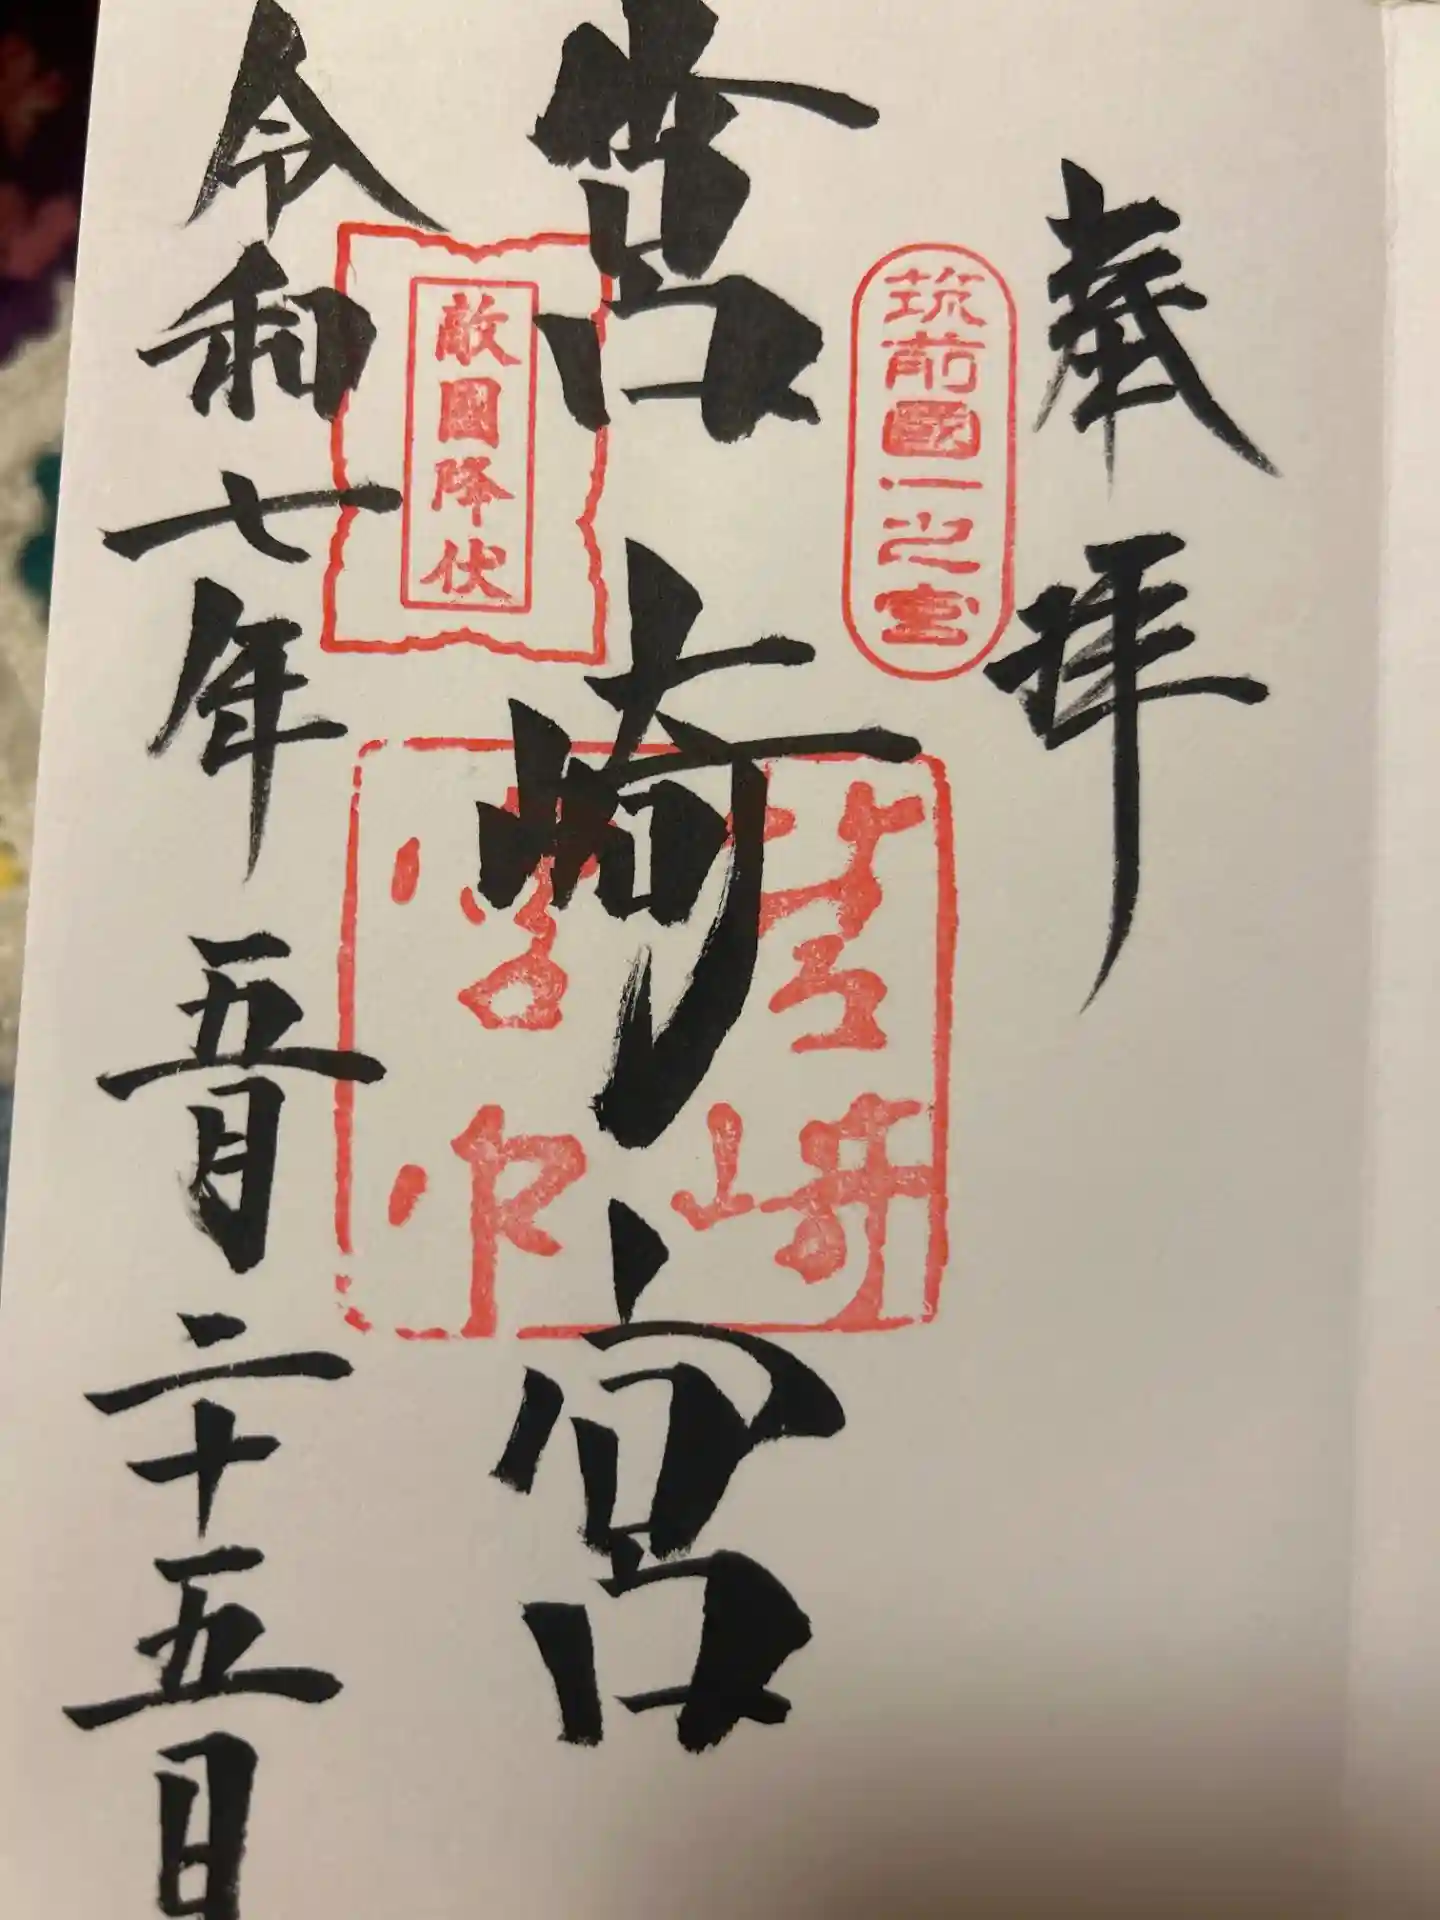 奉拝
筑前國一之宮
筥崎宮
筥崎
宮印
敵國降伏
令和七年五月二十五日